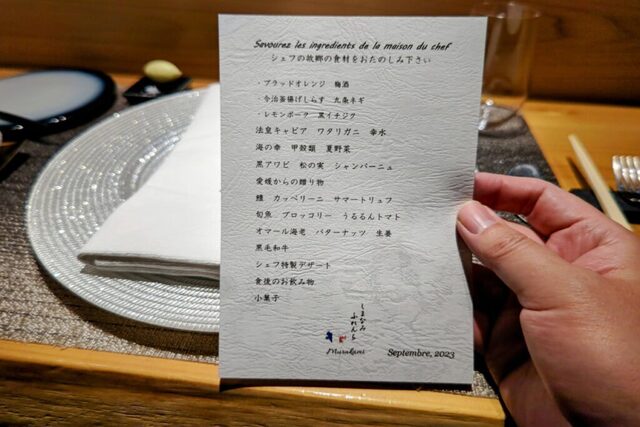 Savourez les ingredients de la maison du chef
シェフの故郷の食材をおたのしみ下さい
・ブラッドオレンジ 梅酒
・今治釜揚げしらす 九条ネギ
・レモンポーク 黒イチジク
法皇キャビア ワタリガニ 幸水
海の幸 甲殻類 夏野菜
黒アワビ 松の実 シャンパーニュ
愛媛からの贈り物
鱧 カッペリーニ サマートリュフ
旬魚 ブロッコリー うるるんトマト
オマール海老 バターナッツ 生姜
黒毛和牛
シェフ特製デザート
食後のお飲み物
小菓子
しまなみ
ふれんち
Murakami
Septembre, 2023